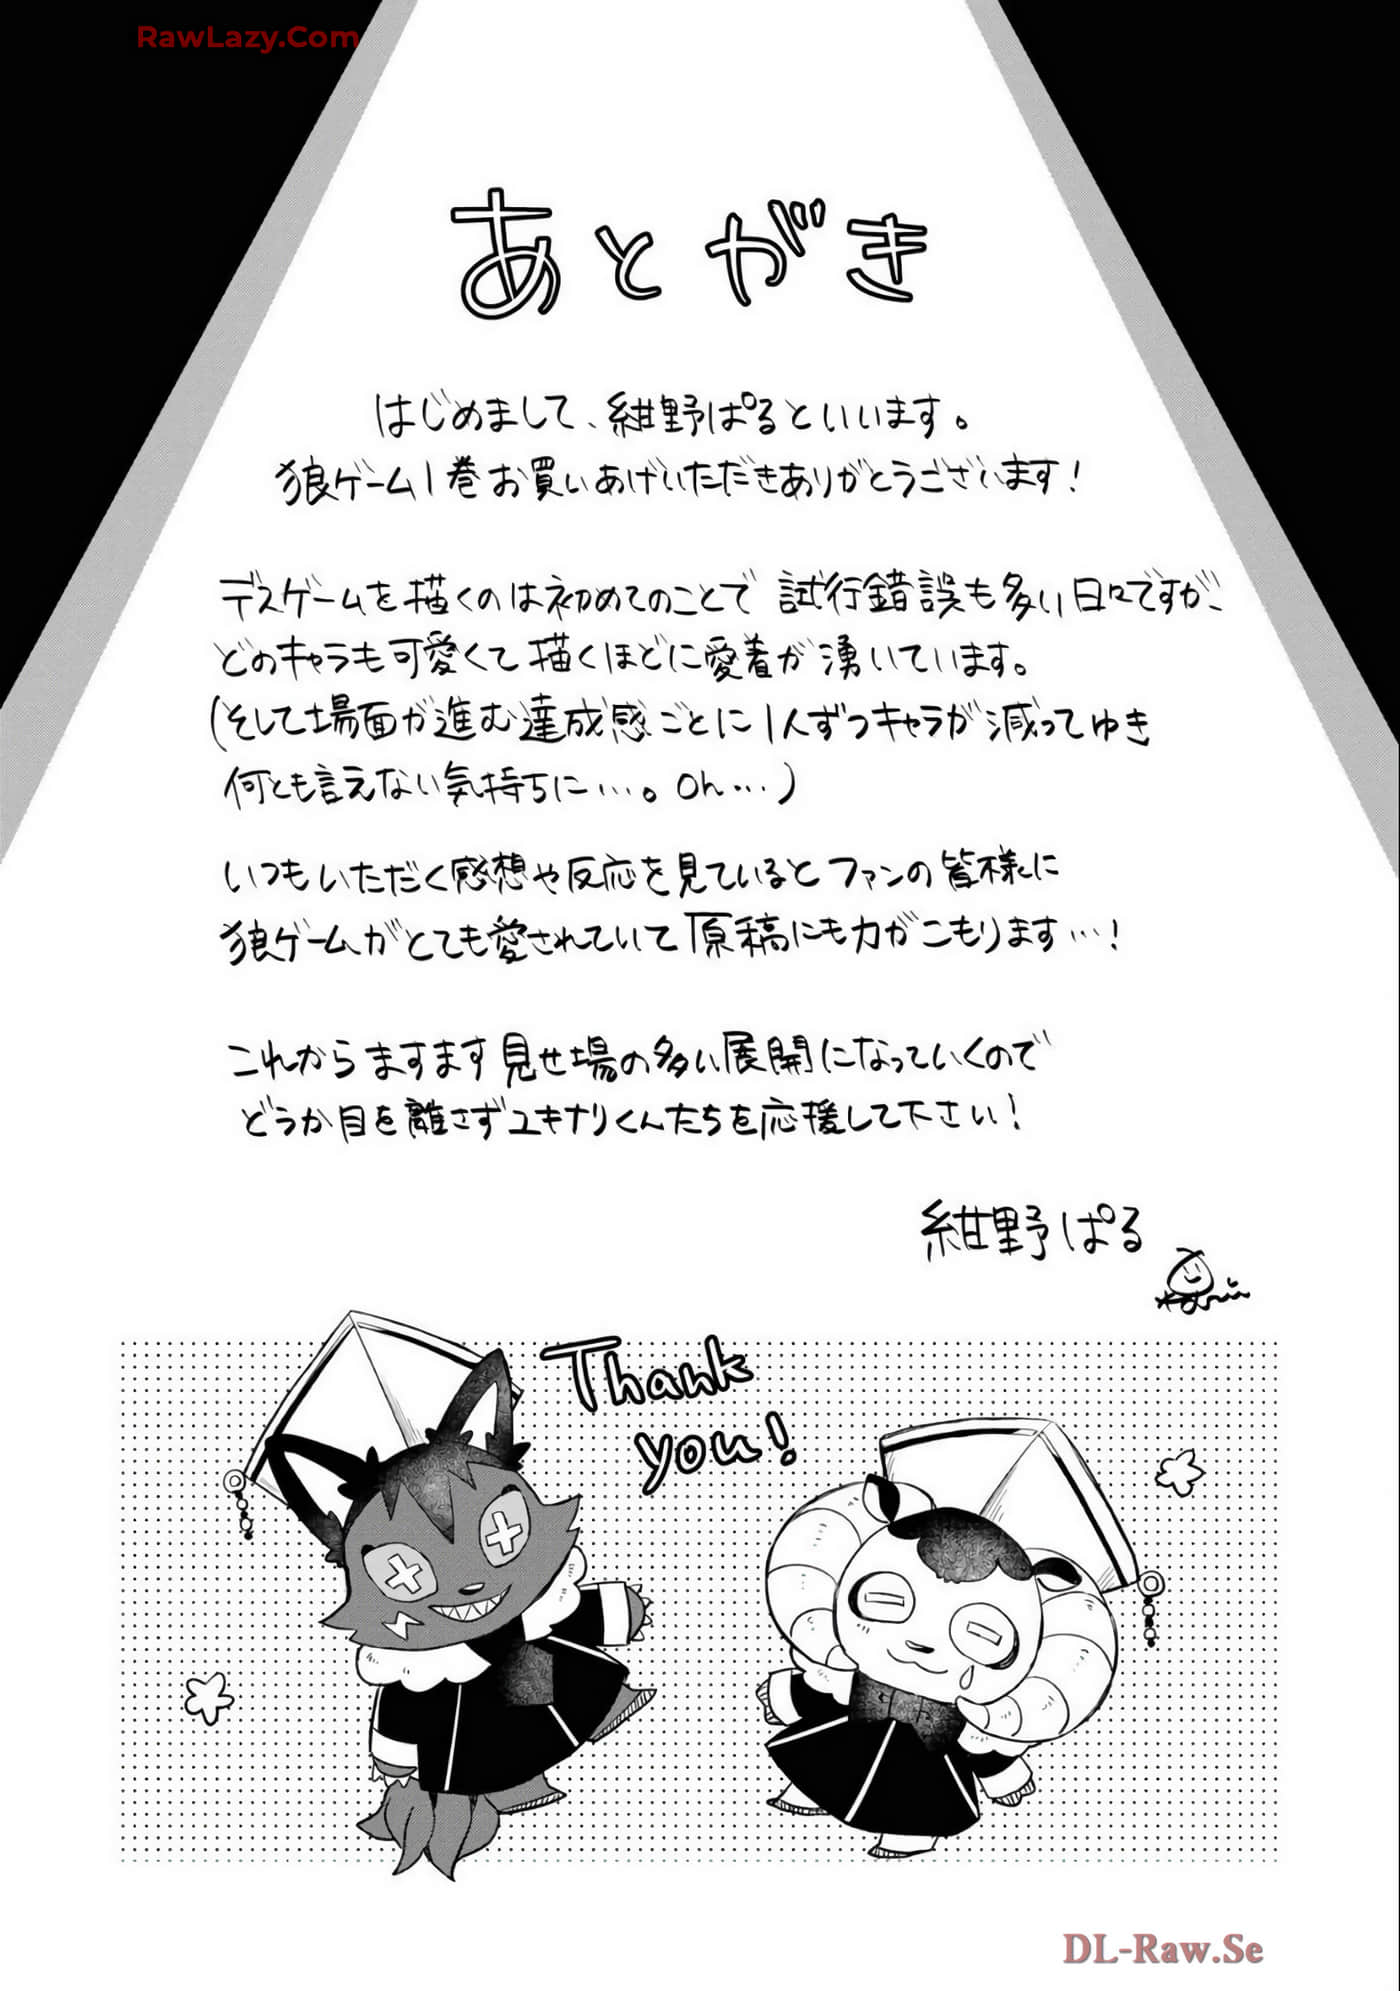 RawLazy.Com
あとがき
はじめまして、紺野ぱるといいます。
狼ゲーム1巻お買いあげいただきありがとうございます!
デスゲームを描くのは初めてのことで 試行錯誤も多い日々ですが、
どのキャラも可愛くて描くほどに愛着が湧いています。
(そして場面が進む達成感ごとに1人ずつキャラが減ってゆき
何とも言えない気持ちに…。Oh…)
いつもいただく感想や反応を見ているとファンの皆様に
狼ゲームがとても愛されていて原稿にも力がこもります…!
これからますます見せ場の多い展開になっていくので
どうか目を離さずユキナリくんたちを応援して下さい!
紺野ぱる
Thank
you!
DL-Raw.Se